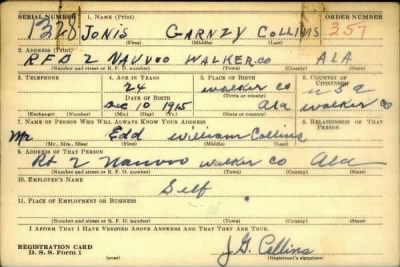 SERIAL NUMBER 1. NAME (Print) ORDER NUMBER
1320 JONIS GARNZY COLLINS 357
(First) (Middle) (Last)
2. ADDRESS (Print)
RFD 2 NAUVOO WALKER.CO ALA
(Number and street or R. F. D. number) (Town) (County) (State)
3. TELEPHONE 4. AGE IN YEARS 5. PLACE OF BIRTH 6. COUNTRY OF CITIZENSHIP
24 walker co U S a
DATE OF BIRTH (Town or county)
Dec 10 1915 Ala walker co
(Exchange) (Number) (Mo.) (Day) (Yr.) (State or country)
7. NAME OF PERSON WHO WILL ALWAYS KNOW YOUR ADDRESS 8. RELATIONSHIP OF THAT PERSON
Mr Edd William Collins
(Mr., Mrs., Miss) (First) (Middle) (Last)
9. ADDRESS OF THAT PERSON
Rt 2 Nauvoo walker co Ala
(Number and street or R. F. D. number) (Town) (County) (State)
10. EMPLOYER'S NAME
Self
11. PLACE OF EMPLOYMENT OR BUSINESS
(Number and street or R. F. D. number) (Town) (County) (State)
I AFFIRM THAT I HAVE VERIFIED ABOVE ANSWERS AND THAT THEY ARE TRUE.
REGISTRATION CARD
D. S. S. Form 1 J G Collins
(Registrant's signature)